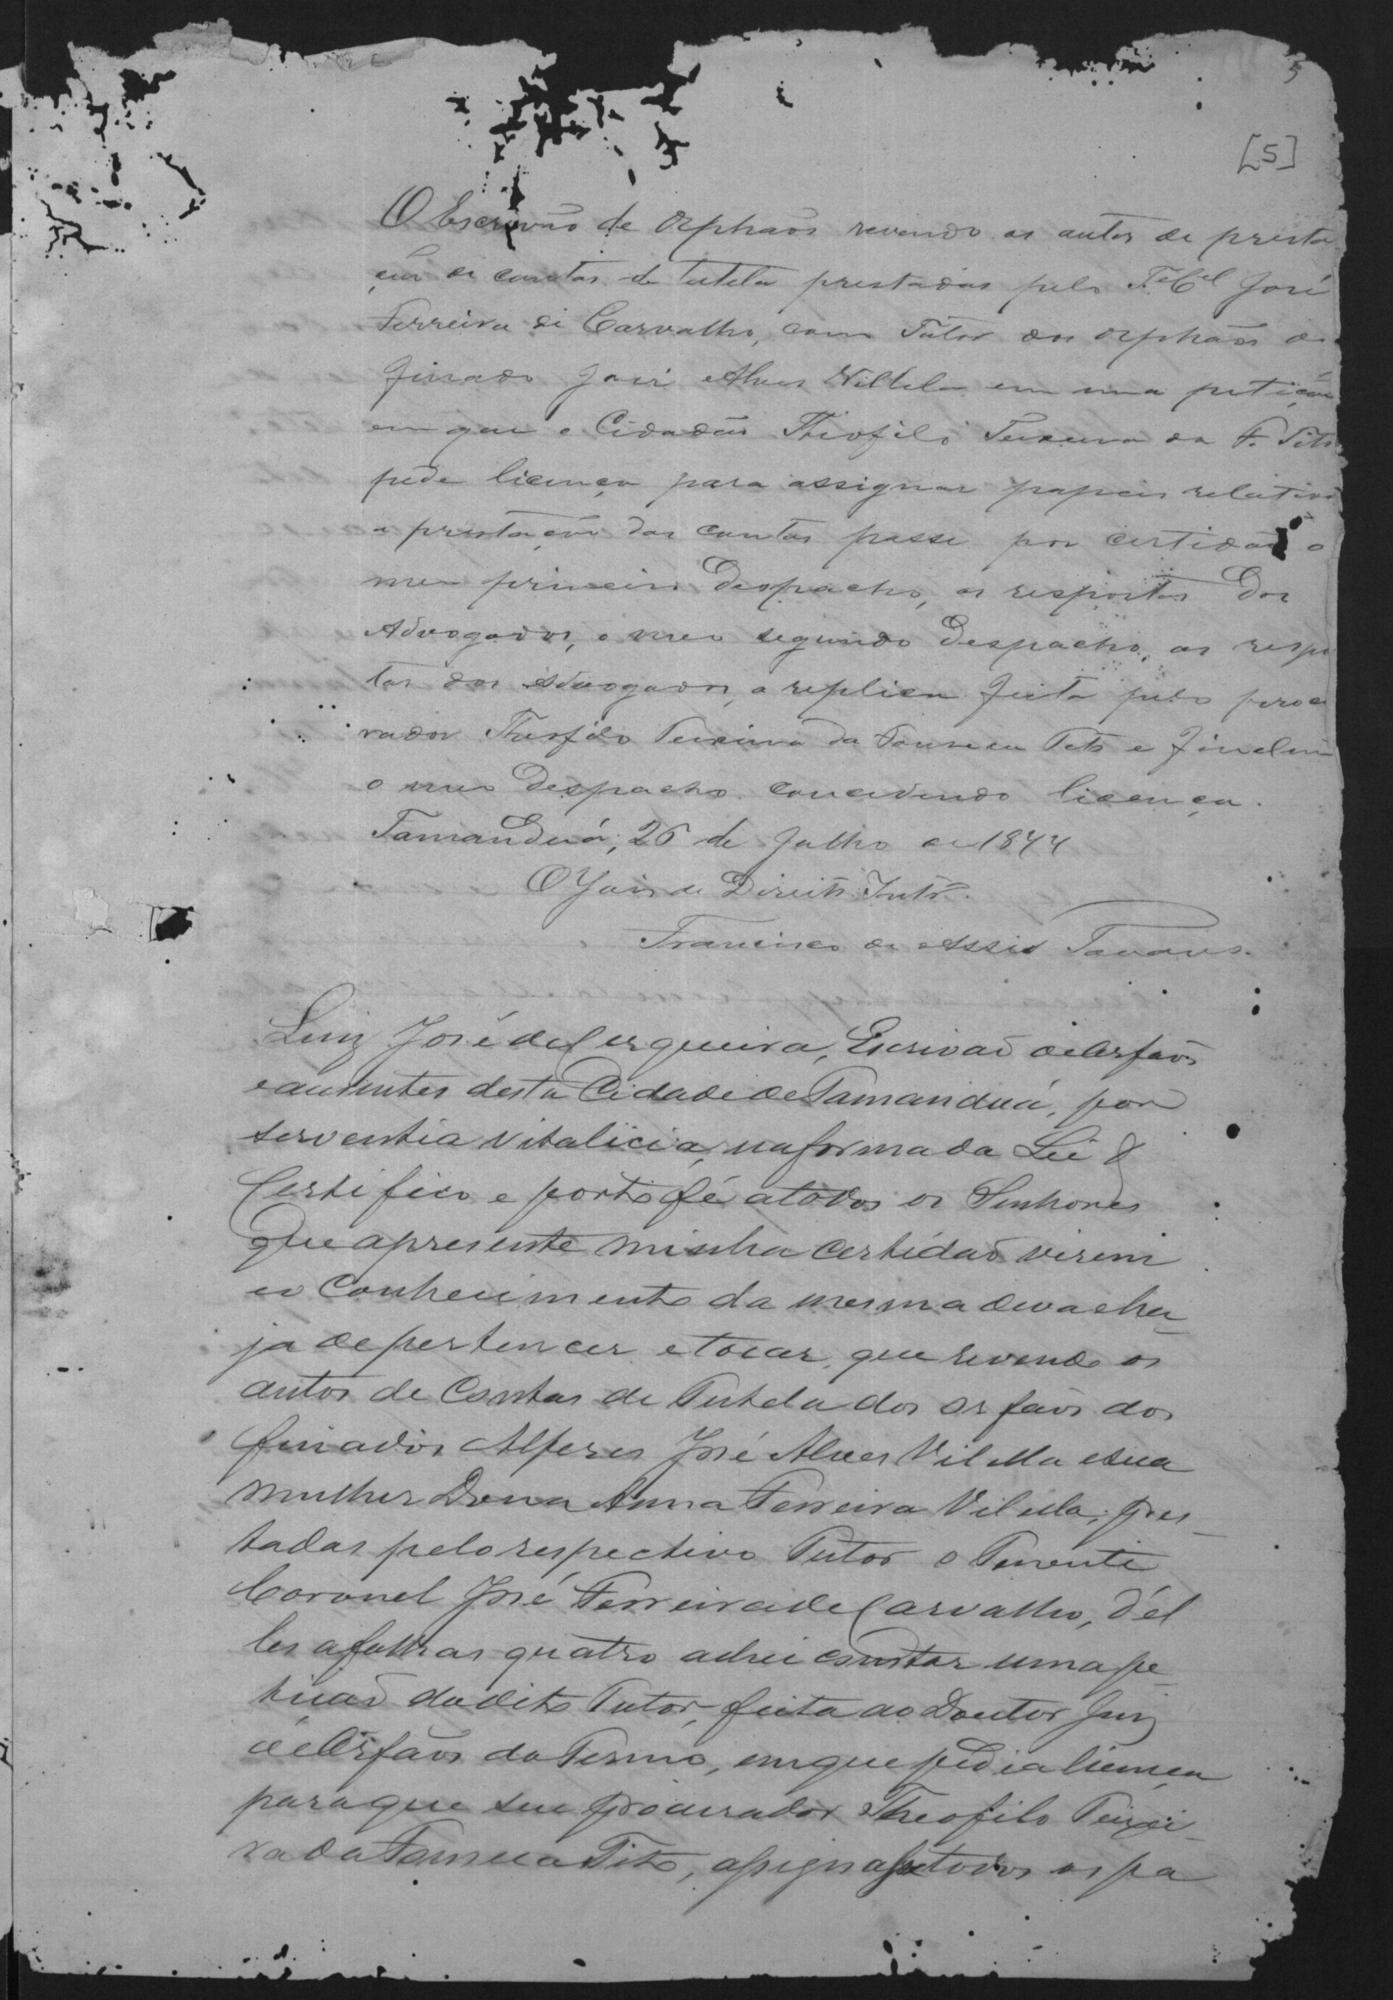 5
[5]
O Escrivão de Orphãos revendo os autos de presta
ção de contas de tutela prestadas pelo Te Cel José
Ferreira de Carvalho, como Tutor dos Orphãos do
finado José Alves Villela em uma petição
em que o Cidadão Theofilo Teixeira da F. Tito
pede licença para assignar papeis relativos
a prestação das contas passe por certidão o
meu primeiro Despacho, as respostas dos
Advogados, o meu segundo Despacho, as respos
tas dos Advogados, a replica feita pelo procu
rador Theofilo Teixeira da Fonseca Tito e finalm
o meu Despacho concedendo licença.
Tamanduá, 26 de Julho de 1877
O Juiz de Direito Intr.
Francisco de Assis Tavares.
Luiz José de Cerqueira, Escrivão de Orfãos
e auzentes desta Cidade de Tamanduá, por
serventia vitalicia, na forma da Lei &
Certifico e porto fé a todos os Senhores
que apresente minha certidão virem
eo conhecimento da mesma deva e ha-
ja de pertencer e tocar, que revendo os
autos de Contas de Tutela dos orfãos dos
finados Alferes José Alves Vilella e sua
mulher Dona Anna Ferreira Vilella, pres-
tadas pelo respectivo Tutor o Tenente
Coronel José Ferreira de Carvalho, d'el
les a folhas quatro achei constar uma pe-
tição do dito Tutor, feita ao Doutor Juiz
de Orfãos do Termo, em que pedia licença
para que seu procurador Theofilo Teixei-
ra da Fonseca Tito, assignasse todos os pa